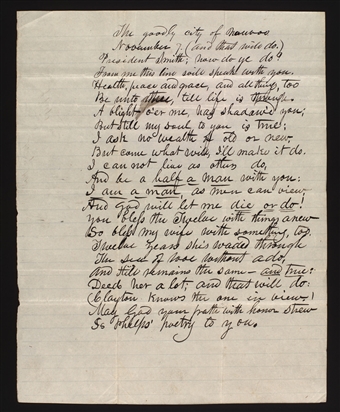 The goodly city of Nauvoo
November 7, (and that will do.)
President Smith; how do ye do?
From me this line will speak with you.
Health, peace and grace, and all thing, too
Be unto thee, till life is through.
A blight o'er me, has shadow'd you;
But still my soul, to you is true;
I ask no wealth of old or new,
But come what will, I'll make it do.
I can not live as others do,
And be a half a man with you:
I am a man, as men can view,
And God will let me die or do!
You bless the Twelve with things anew
So bless my wife with something, too.
Twelve years she's waded through
The sea of love without ado,
And still remains the same—and true:
Deed her a lot, and that will do:
Clayton knows the one in view!
May God your path with honor strew
So Phelps' poetry to you.